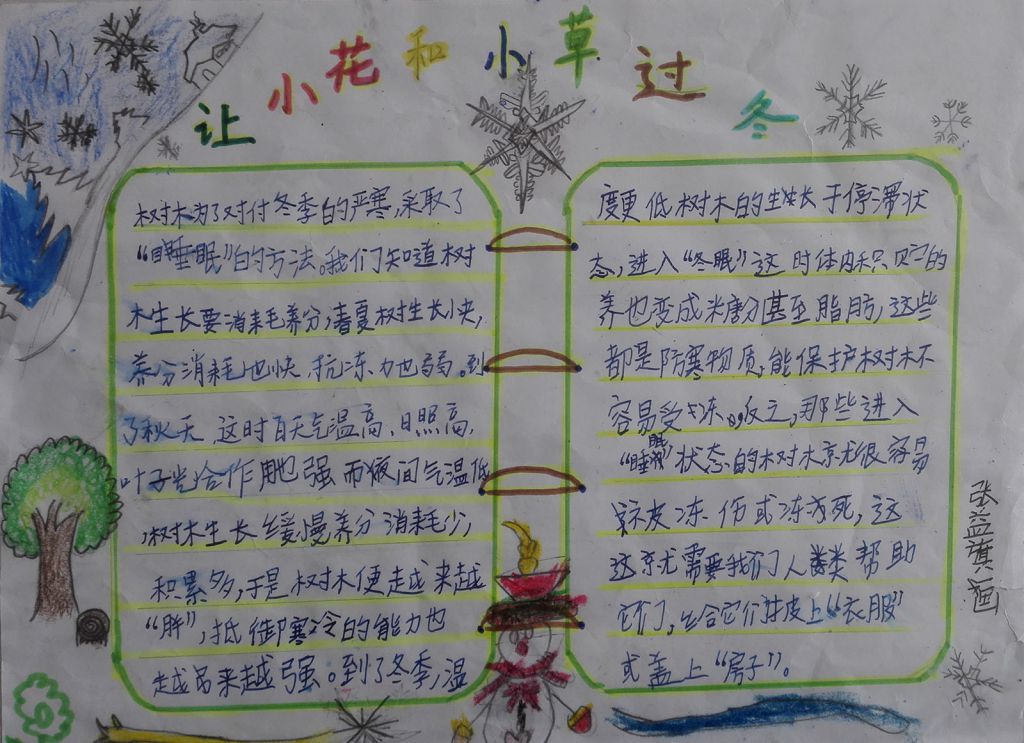 让小花和小草过冬
树木为了对付冬季的严寒,采取了
“睡眠”的方法。我们知道树
木生长要消耗养分,春夏树生长快,
养分消耗也快,抗冻力也弱。到
了秋天 这时白天气温高,日照高,
叶子光合作用也强 而夜间气温低
,树木生长缓慢养分消耗少,
积累多,于是树木便越来越
“胖”,抵御寒冷的能力也
越来越强。到了冬季,温
度更低树木的生长于停滞状
态,进入“冬眠”这时体内积贮的
养也变成米糖分甚至脂肪,这些
都是防寒物质,能保护树木不
容易受冻。反之,那些进入
“睡眠”状态的树木就很容易
被冻伤或冻死,这
这就需要我们人类帮助
它们,给它们披上“衣服”
或盖上“房子”。
张益萁画